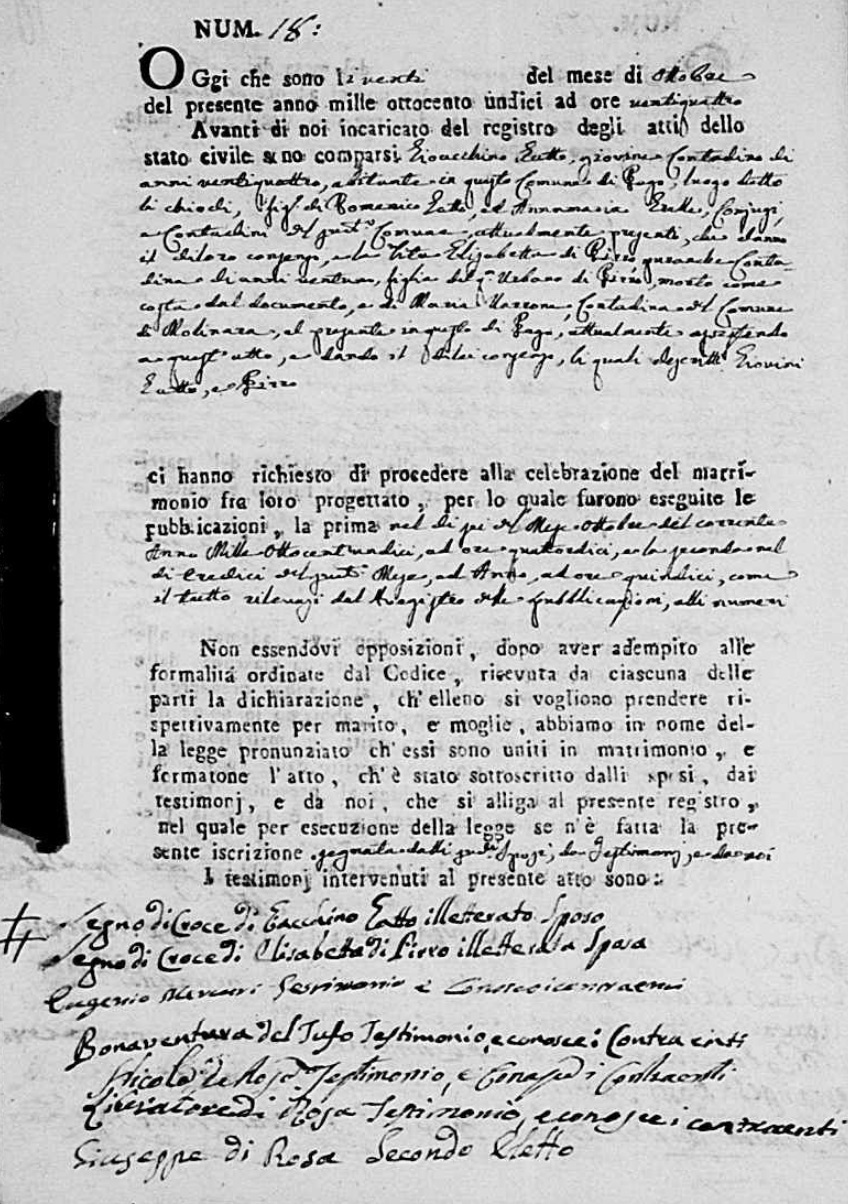 NUM. 18:
OGgi che sono li venti del mese di Ottobre
del presente anno mille ottocento undici ad ore ventiquattro
Avanti di noi incaricato del registro degli atti dello
stato civile sono comparsi Gioacchino Zatto, giovine Contadino di
anni ventiquattro, abitante in questo Comune di Pago, luogo detto
li chiochi, figl. di Domenico Zatto, ed Annamaria Conjugi,
e Contadini del pres.e Comune, attualmente presenti, che danno
il di loro consenso, e la Zita Elizabetta di Pirro pur anche Conta-
dina di anni ventuno, figlia del q.m Urbano di Pirro, morto come
costa dal documento, e di Maria Contadina del Comune
di Molinara, al presente in questo di Pago, attualmente assistendo
a quest'atto, e dando il di lei consenso, li quali descritti Giovini
Zatto, e Pirro
ci hanno richiesto di procedere alla celebrazione del matri-
monio fra loro progettato, per lo quale furono eseguite le
pubblicazioni, la prima nel dì sei del Mese Ottobre del corrente
Anno Mille Ottocentundici, ad ore quattordici, e la seconda nel
dì tredici del pres.e Mese, ed Anno, ad ore quindici, come
il tutto rilevasi dal Registro delle pubblicazioni, alli numeri
Non essendovi opposizioni, dopo aver adempito alle
formalitá ordinate dal Codice, ricevuta da ciascuna delle
parti la dichiarazione, ch'elleno si vogliono prendere ri-
spettivamente per marito, e moglie, abbiamo in nome del-
la legge pronunziato ch'essi sono uniti in matrimonio, e
formatone l'atto, ch'è stato sottoscritto dalli sposi, dai
testimonj, e da noi, che si alliga al presente registro,
nel quale per esecuzione della legge se n'è fatta la pre-
sente iscrizione segnata dalli sud.i Sposi, da Testimonj, e da noi
I testimonj intervenuti al presente atto sono:
Segno di Croce di Gacchino Zatto illetterato Sposo
Segno di Croce di Elisabetta di Pirro illetterata Sposa
Eugenio Mercuri Testimonio e Conosco i contraenti
Bonaventura del Tufo Testimonio, e conosce i Contraenti
Nicola de Rosa Testimonio, e Conosce i Contraenti
Liberatore di Rosa Testimonio, e conosce i contraenti
Giuseppe di Rosa Secondo Eletto